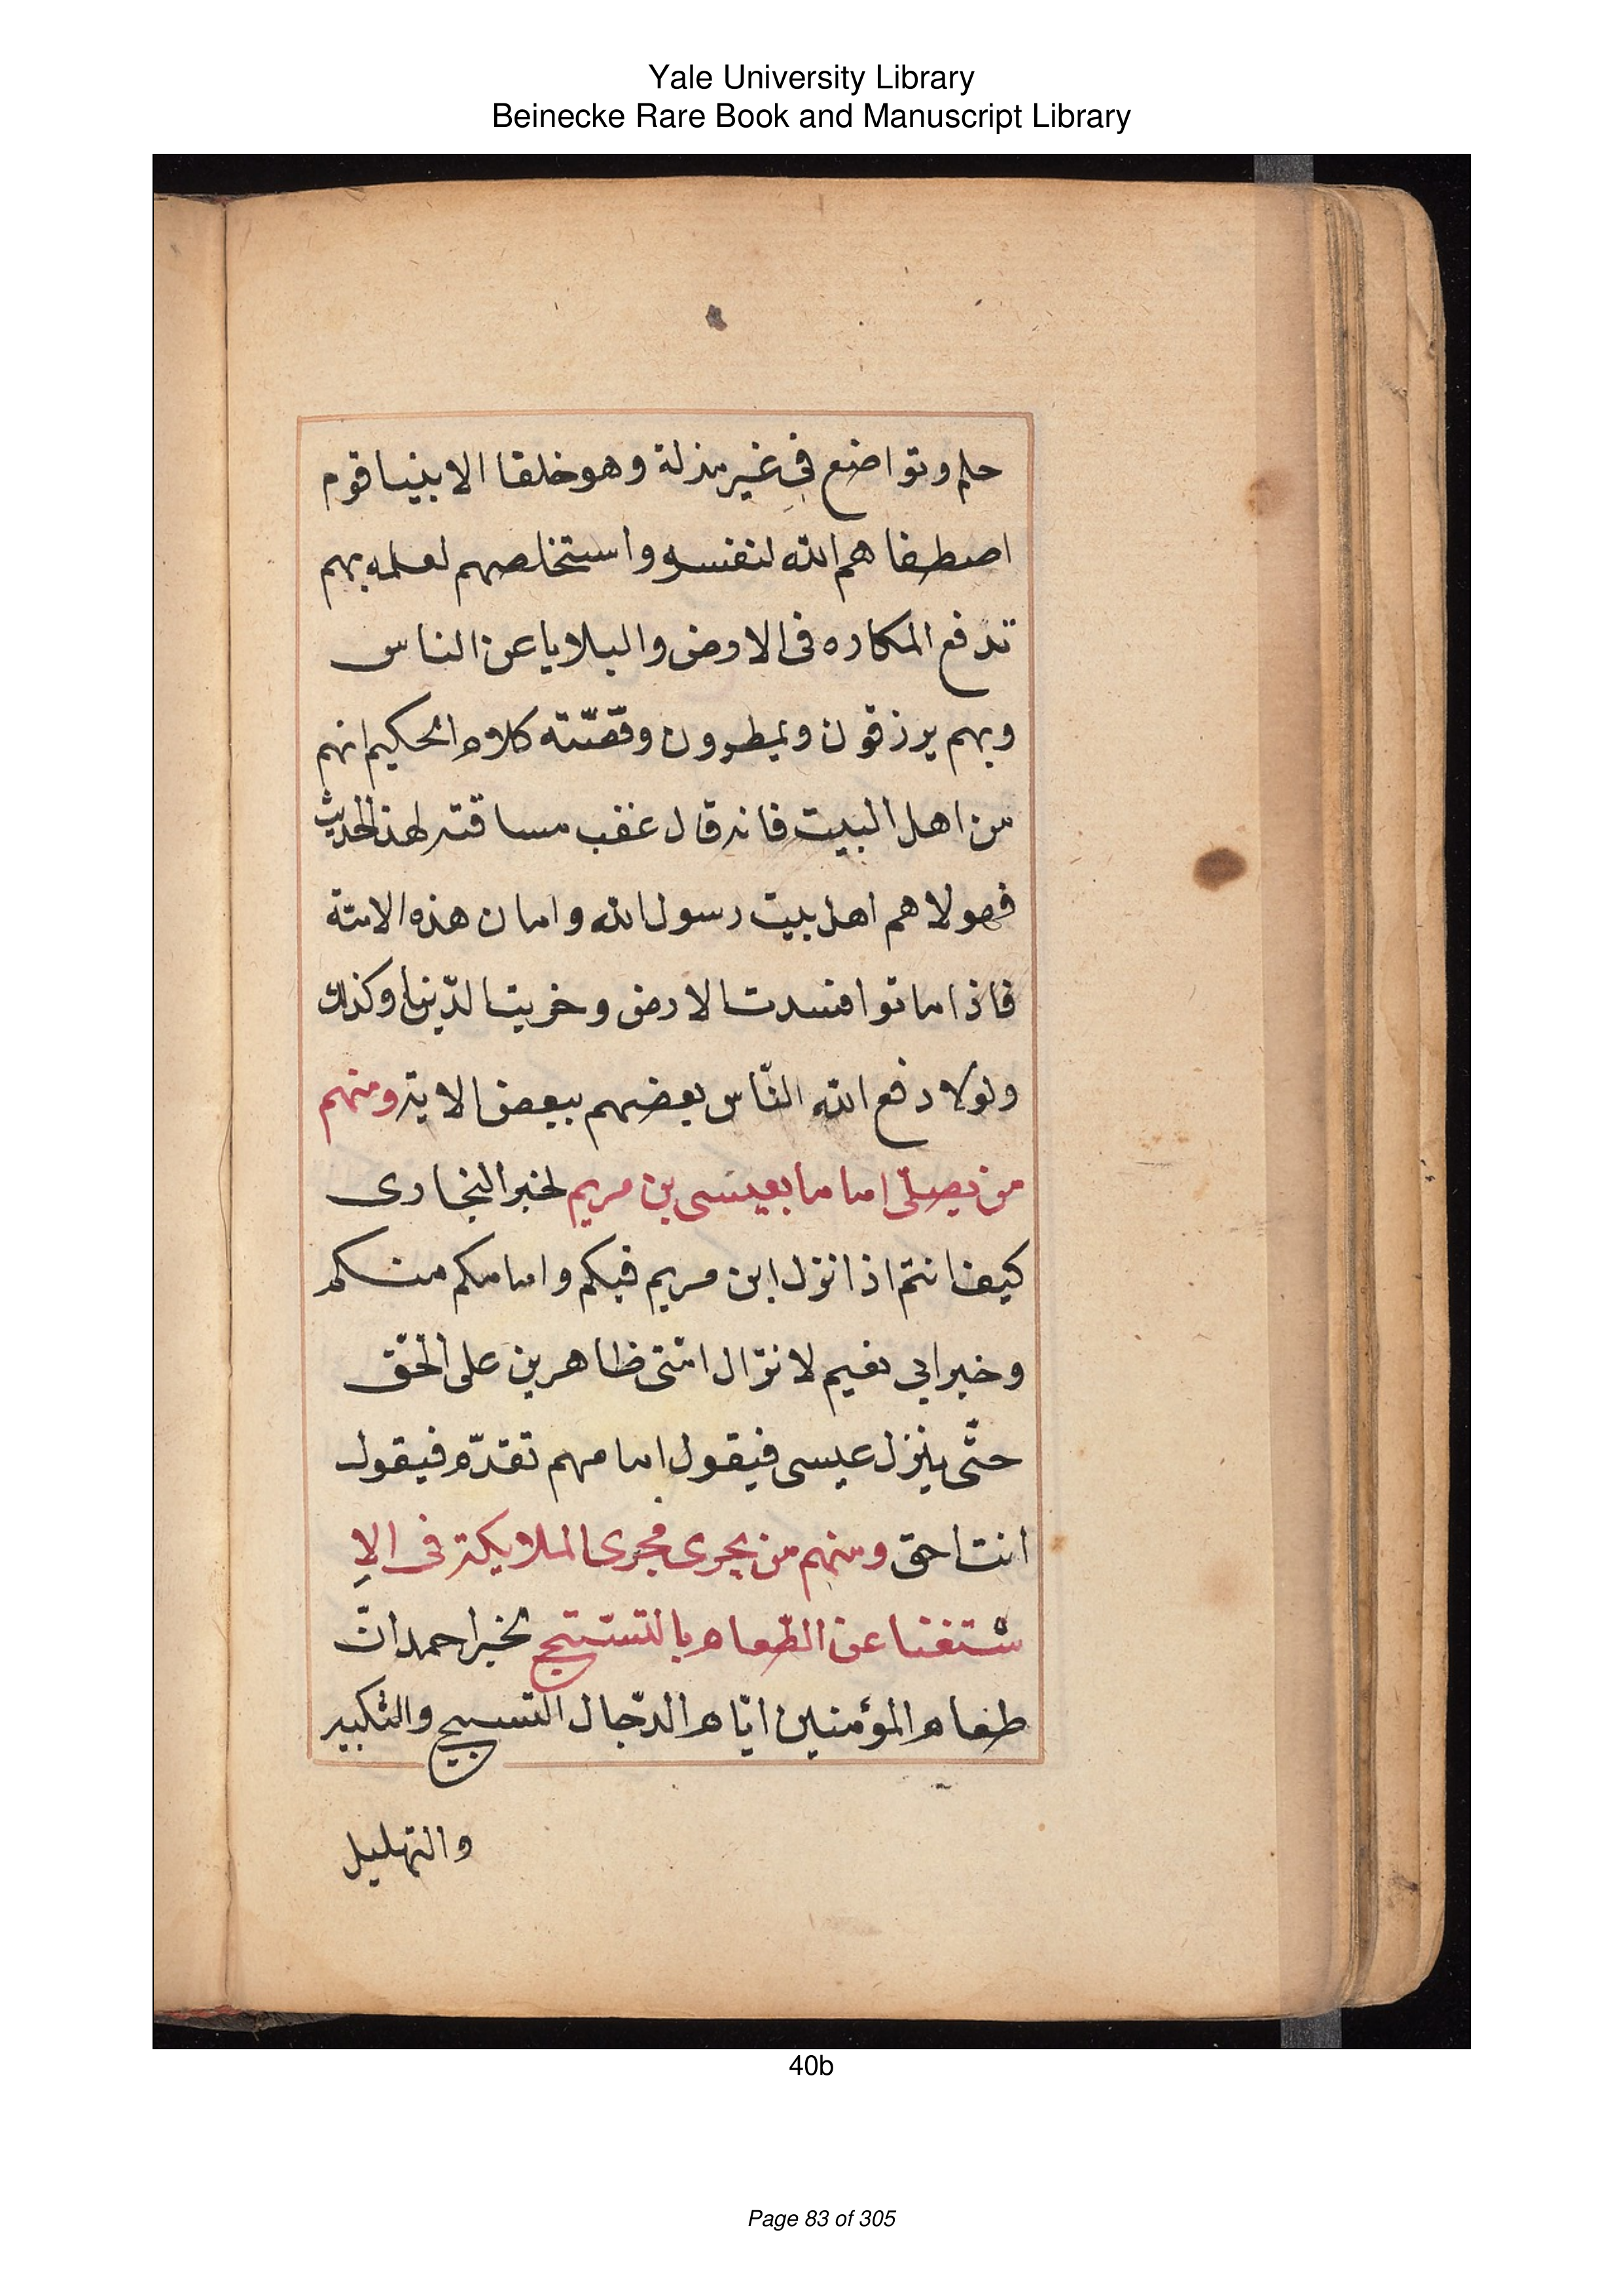 Yale University Library
Beinecke Rare Book and Manuscript Library
حلم وتواضع في غير مذلة وهو خلقا الابنيا قوم
اصطفاهم الله لنفسه واستخلصهم لعلمه بهم
تدفع المكاره فى الارض والبلايا عن الناس
وبهم يرزقون ويمطرون وقصّته كلام الحكيم انهم
من اهل البيت فانه قال عقب مساقته لهذ الحديث
فهولا هم اهل بيت رسول الله وامان هذه الامّة
فاذا ماتوا افسدت الارض وخربت الدّنيا وكذلك
ولولا دفع الله النّاس بعضهم ببعض الاية ومنهم
من يصلّى اماما بعيسى بن مريم لخبر البخارى
كيف انتم اذا نزل ابن مريم فيكم وامامكم منكم
وخبر ابي نعيم لا تزال امّتى ظاهرين على الحق
حتّى ينزل عيسى فيقول امامهم تقدّم فيقول
انت احق ومنهم من يجرى مجرى الملايكة فى الاِ
ستغنا عن الطّعام بالتسبيح لخبر احمد انّ
طعام المؤمنين ايّام الدّجال التسبيح والتكبير
والتهليل
40b
Page 83 of 305